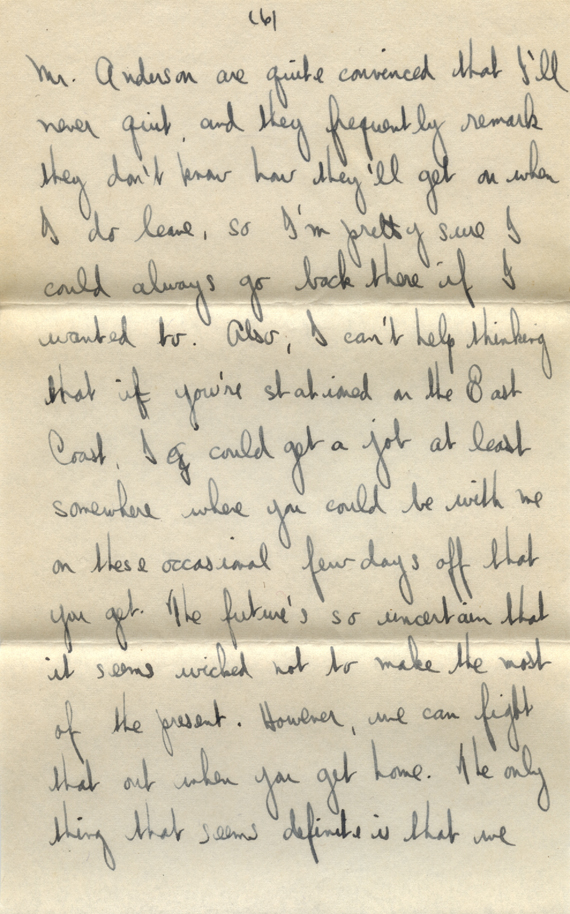 (6)
Mr. Anderson are quite convinced that I'll
never quit, and they frequently remark
they don't know how they'll get on when
I do leave, so I'm pretty sure I
could always go back there if I
wanted to. Also, I can't help thinking
that if you're stationed on the East
Coast, I could get a job at least
somewhere where you could be with me
on these occasional few days off that
you get. The future's so uncertain that
it seems wicked not to make the most
of the present. However, we can fight
that out when you get home. The only
thing that seems definite is that we